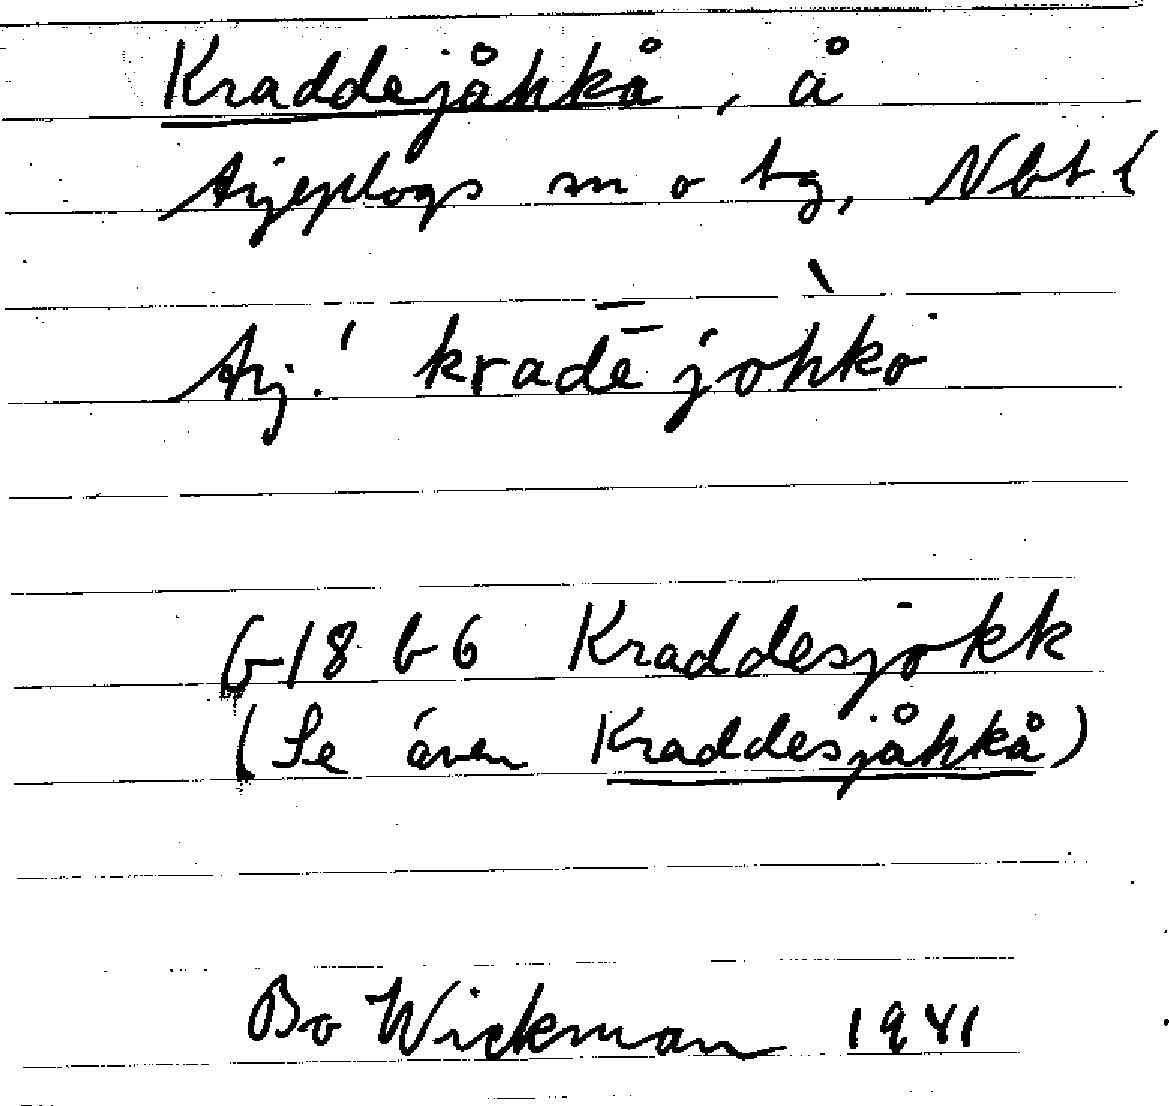 Kraddejåhkå, å
Arjeplogs sn o tg, Nbt l
Arj. kradējohko
G18 b6 Kraddesjokk
(Se även Kraddesjåhkå)
Bo Wickman 1941